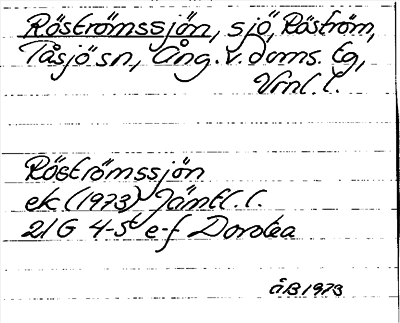 Röströmssjön, sjö, Röström,
Tåsjö sn, Ång. v. doms. tg,
Vrnl. l.
Röströmssjön
ek (1973) Jämtl. l.
21G 4-5 e-f Dorotea
åB 1973